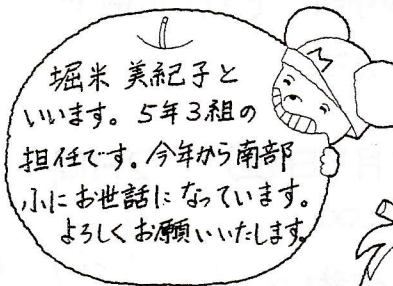 堀米 美紀子と
いいます。5年3組の
担任です。今年から南部
小にお世話になっています。
よろしくお願いいたします。